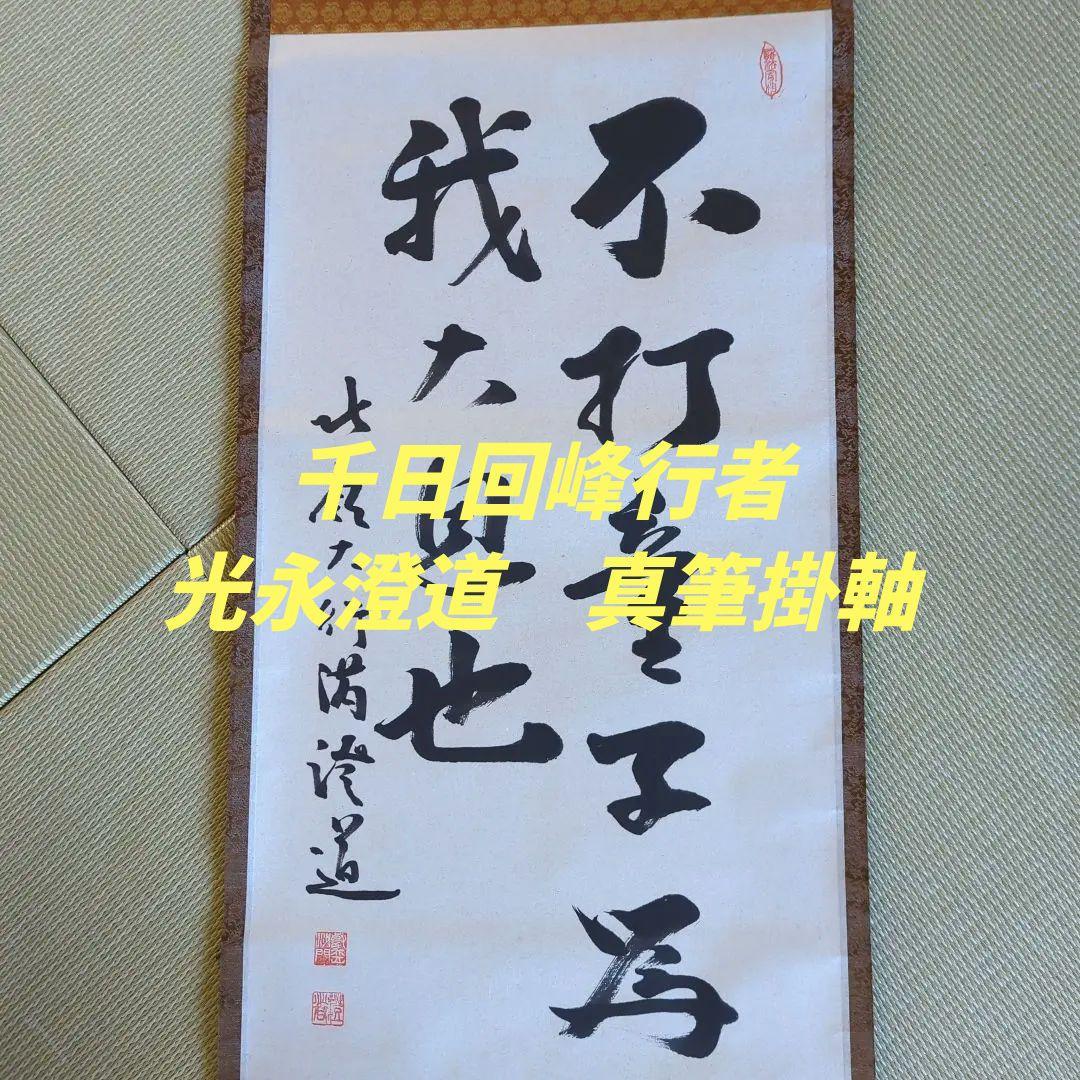 不打童子為
我大恩也
北嶺大行満澄道
千日回峰行者
光永澄道　真筆掛軸